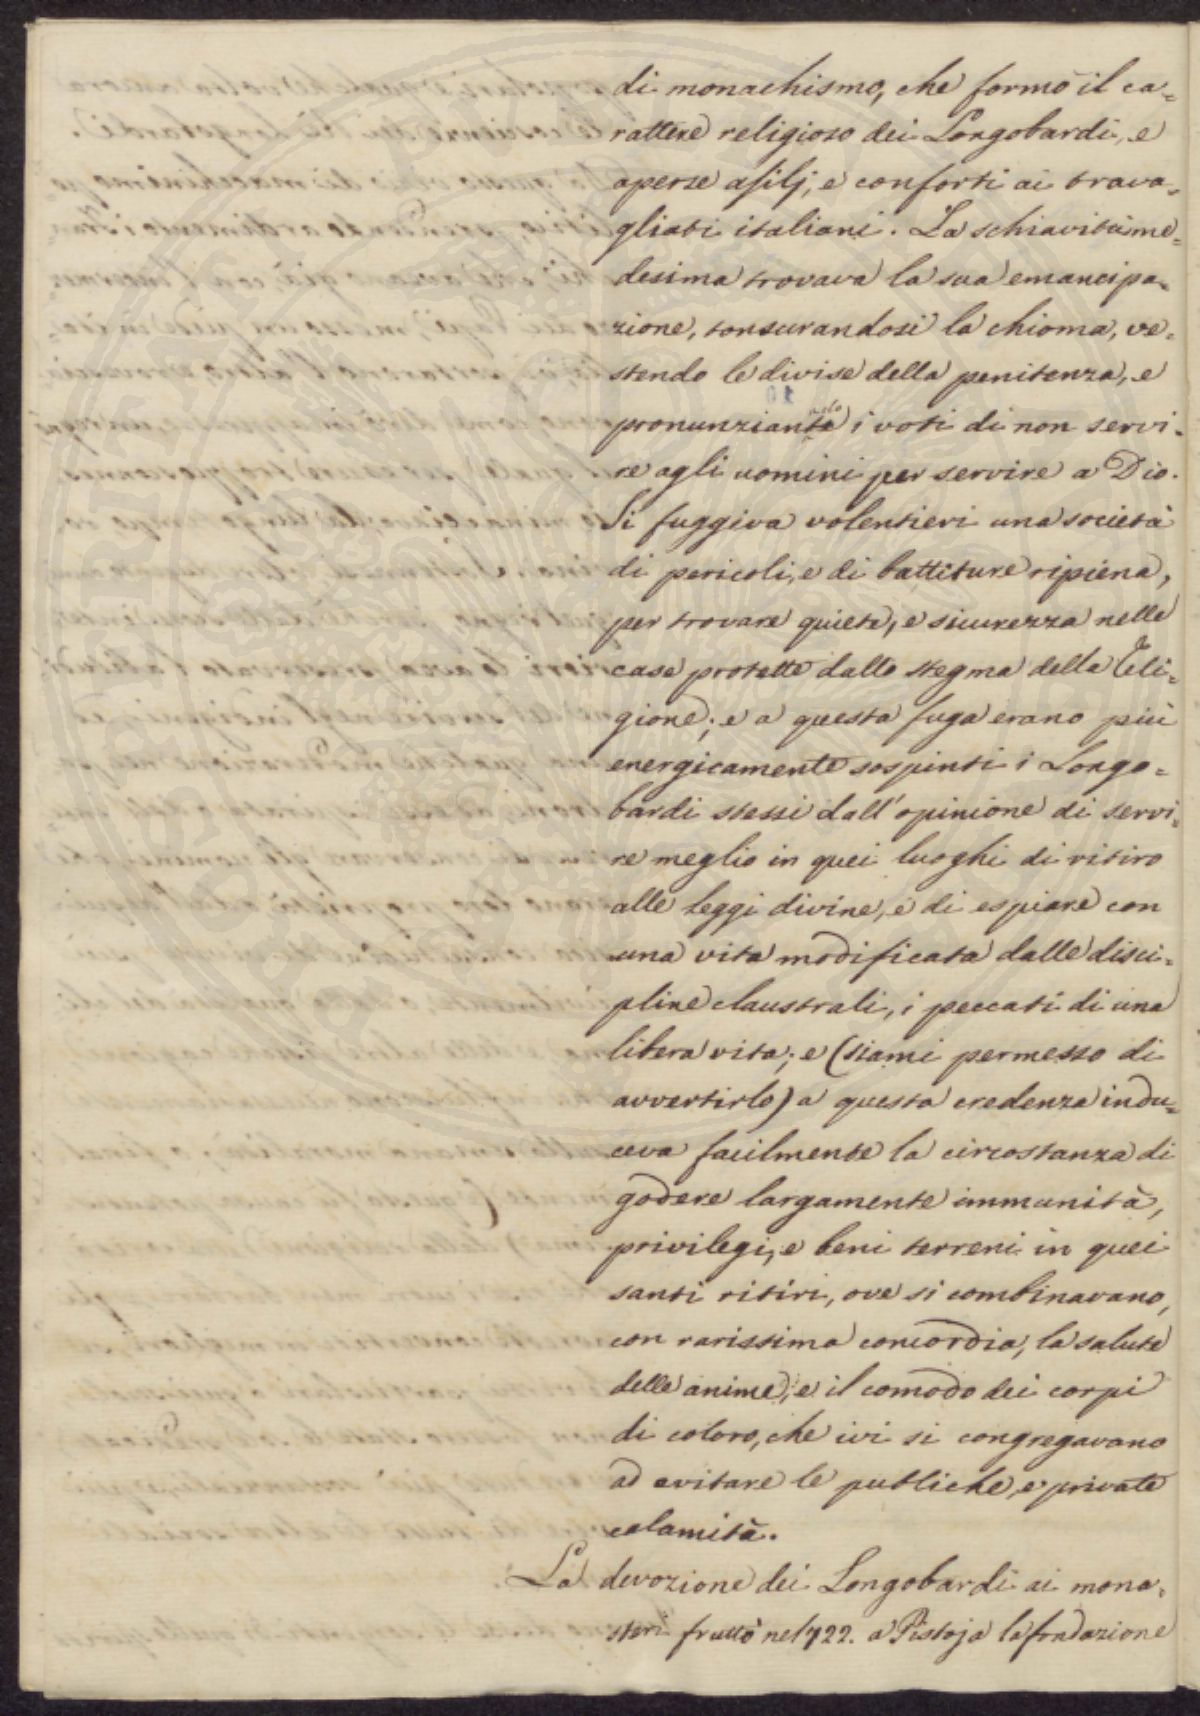 di monachismo, che formò il ca=
rattere religioso dei Longobardi, e
aperse asilj, e conforti ai trava=
gliati italiani. La schiavitù me=
desima trovava la sua emancipa=
zione, tonsurandosi la chioma, ve=
stendo le divise della penitenza, e
pronunziando i voti di non servi=
re agli uomini per servire a Dio.
Si fuggiva volentieri una società
di pericoli, e di battiture ripiena,
per trovare quiete, e sicurezza nelle
case protette dallo stegma della Reli=
gione; e a questa fuga erano più
energicamente sospinti i Longo=
bardi stessi dall'opinione di servi=
re meglio in quei luoghi di ritiro
alle leggi divine, e di espiare con
una vita modificata dalle disci=
pline claustrali, i peccati di una
libera vita; e (siami permesso di
avvertirlo) a questa credenza indu=
ceva facilmente la circostanza di
godere largamente immunità,
privilegi, e beni terreni in quei
santi ritiri, ove si combinavano,
con rarissima concordia, la salute
delle anime, e il comodo dei corpi
di coloro, che ivi si congregavano
ad evitare le publiche, e private
calamità.
La devozione dei Longobardi ai mona=
steri fruttò nel 722. a Pistoja la fondazione